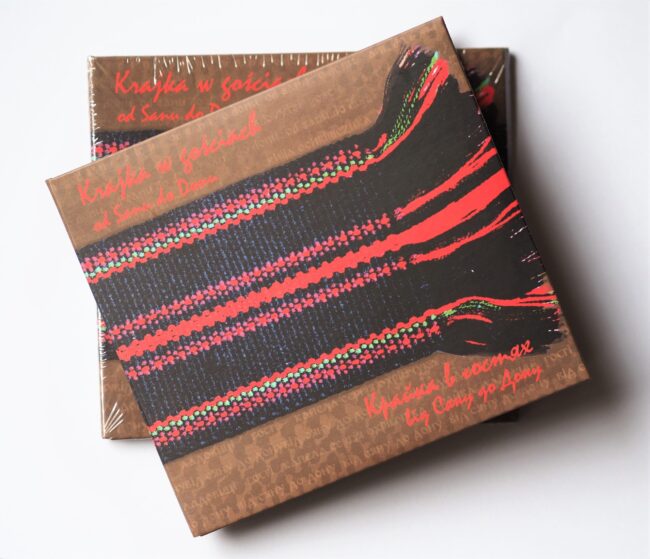 Krajka w gościach
od Sanu do
Krajka w gościach
od Sanu do Donu
Крайка в гостях
від Сяну до Дону